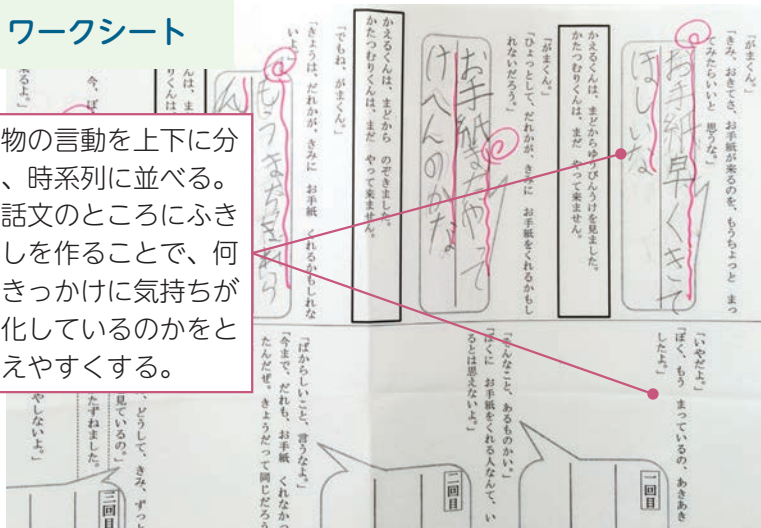 ワークシート
物の言動を上下に分
、時系列に並べる。
話文のところにふき
しを作ることで、何
きっかけに気持ちが
化しているのかをと
えやすくする。
「がまくん。」
「きみ、おきてさ、お手紙が来るのを、もうちょっと まっ
てみたらいいと 思うな。」
お手紙早くきて
ほしいな
かえるくんは、まどからゆうびんうけを見ました。
かたつむりくんは、まだ やって来ません。
「がまくん。」
「ひょっとして、だれかが、きみに お手紙をくれるかもし
れないだろう。」
お手紙まだやって
けへんのかな
かえるくんは、まどから のぞきました。
かたつむりくんは、まだ やって来ません。
「でもね、がまくん。」
「きょうは、だれかが、きみに お手紙 くれるかもしれな
いよ。」
ん
んは、ま
りくんは、
今、ぼ
来るよ。」
「いやだよ。」
「ぼく、もう まっているの、あきあき
したよ。」
一回目
「そんなこと、あるものかい。」
「ぼくに お手紙をくれる人なんて、い
るとは思えないよ。」
二回目
「ばからしいこと、言うなよ。」
「今まで、だれも、お手紙 くれなかっ
たんだぜ。きょうだって同じだろう
、どうして、きみ、ずっと
見ているの。」
たずねました。
やしないよ。」
三回目